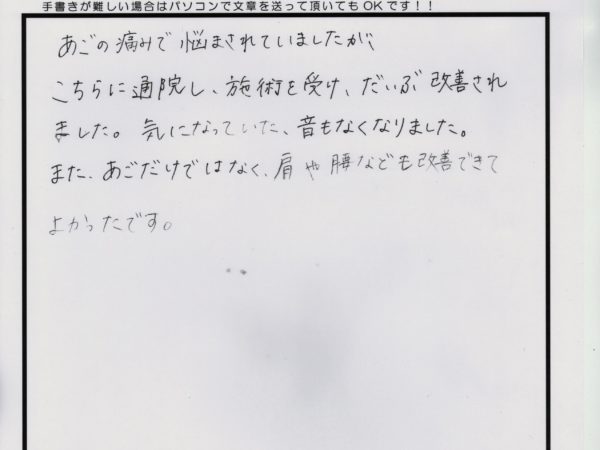 手書きが難しい場合はパソコンで文章を送って頂いてもOKです！！
あごの痛みで悩まされていましたが、
こちらに通院し、施術を受け、だいぶ改善され
ました。気になっていた、音もなくなりました。
また、あごだけではなく、肩や腰なども改善できて
よかったです。